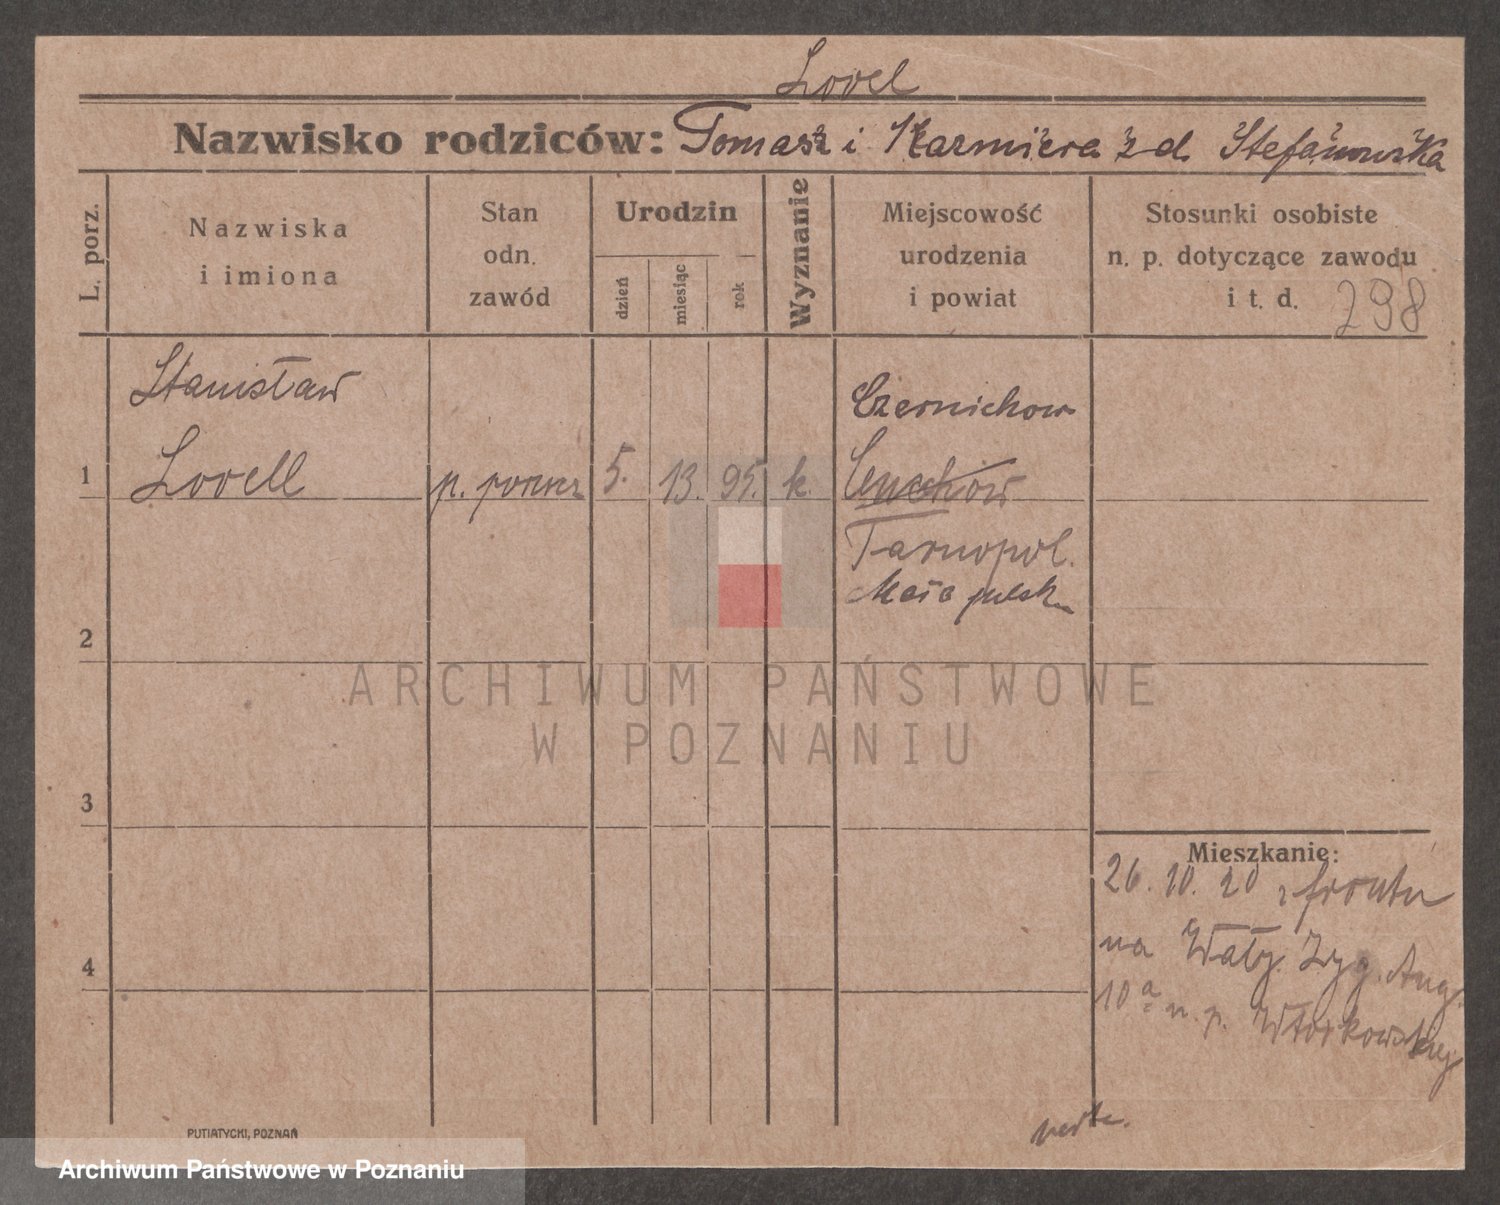 Lovel
Nazwisko rodziców: Tomasz i Kazmiera z d. Stefanowska
L. porz.
Nazwiska
i imiona
Stan
odn.
zawód
Urodzin
dzień
miesiąc
rok
Wyznanie
Miejscowość
urodzenia
i powiat
Stosunki osobiste
n. p. dotyczące zawodu
i t. d.
298
Stanisław
Czernichow
1
Lovell
p. porucz
5.
13.
95.
k.
Tarnopol.
Mało polsk
2
ARCHIWUM PAŃSTWOWE
W POZNANIU
3
Mieszkanie:
26. 10. 20 z frontu
na Wały. Zyg. Aug.
4
10a n. p. Wtorkowskiej
verte.
PUTIATYCKI, POZNAŃ
Archiwum Państwowe w Poznaniu